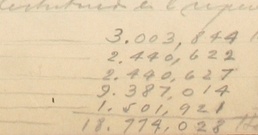 3.003,844
2.440,622
2.440,627
9.387,014
1.501,921
18.774,028